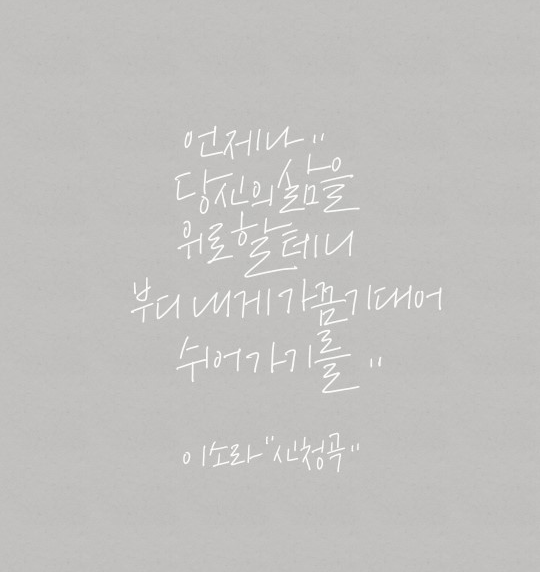 언제나"
당신의 삶을
위로할 테니
부디 내게 가끔 기대어
쉬어가기를"
이소라 "신청곡"